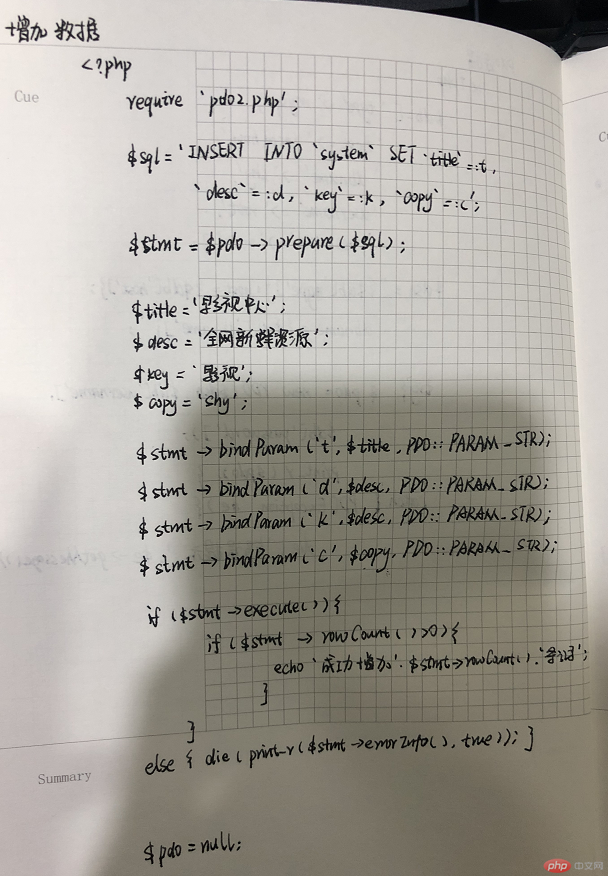 增加数据
<?php
Cue
require 'pdo2.php';
$sql='INSERT INTO `system` SET `title`=:t,
`desc`=:d, `key`=:k, `copy`=:c';
$stmt = $pdo -> prepare($sql);
$title='影视中心';
$desc='全网新鲜资源';
$key='影视';
$copy='shy';
$stmt -> bindParam('t', $title, PDO::PARAM_STR);
$stmt -> bindParam('d', $desc, PDO::PARAM_STR);
$stmt -> bindParam('k', $desc, PDO::PARAM_STR);
$stmt -> bindParam('c', $copy, PDO::PARAM_STR);
if ($stmt ->execute()) {
if ($stmt -> rowCount()>0) {
echo '成功增加'.$stmt->rowCount().'条记录';
}
}
else { die(print_r($stmt->errorInfo(), true)); }
Summary
$pdo=null;
php 中文网